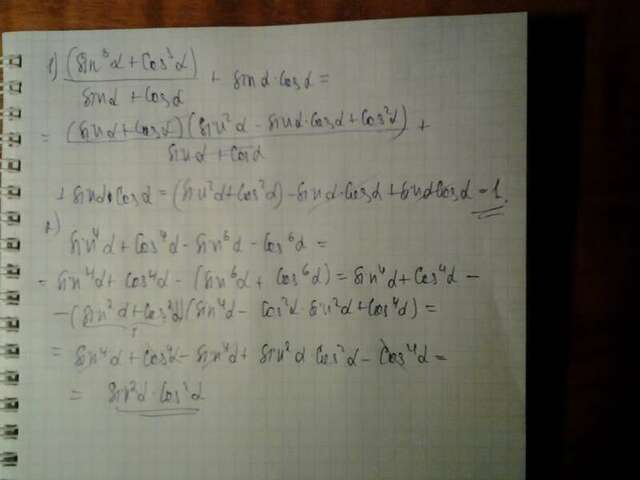 1) (sin³α + cos³α) / (sinα + cosα) + sinα·cosα =
= (sinα + cosα)(sin²α - sinα·cosα + cos²α) / (sinα + cosα) +
+ sinα·cosα = (sin²α + cos²α) - sinα·cosα + sinαcosα = 1
2)
sin⁴α + cos⁴α - sin⁶α - cos⁶α =
= sin⁴α + cos⁴α - (sin⁶α + cos⁶α) = sin⁴α + cos⁴α -
- (sin²α + cos²α)(sin⁴α - cos²α·sin²α + cos⁴α) =
1
= sin⁴α + cos⁴α - sin⁴α + sin²α·cos²α - cos⁴α =
= sin²α·cos²α